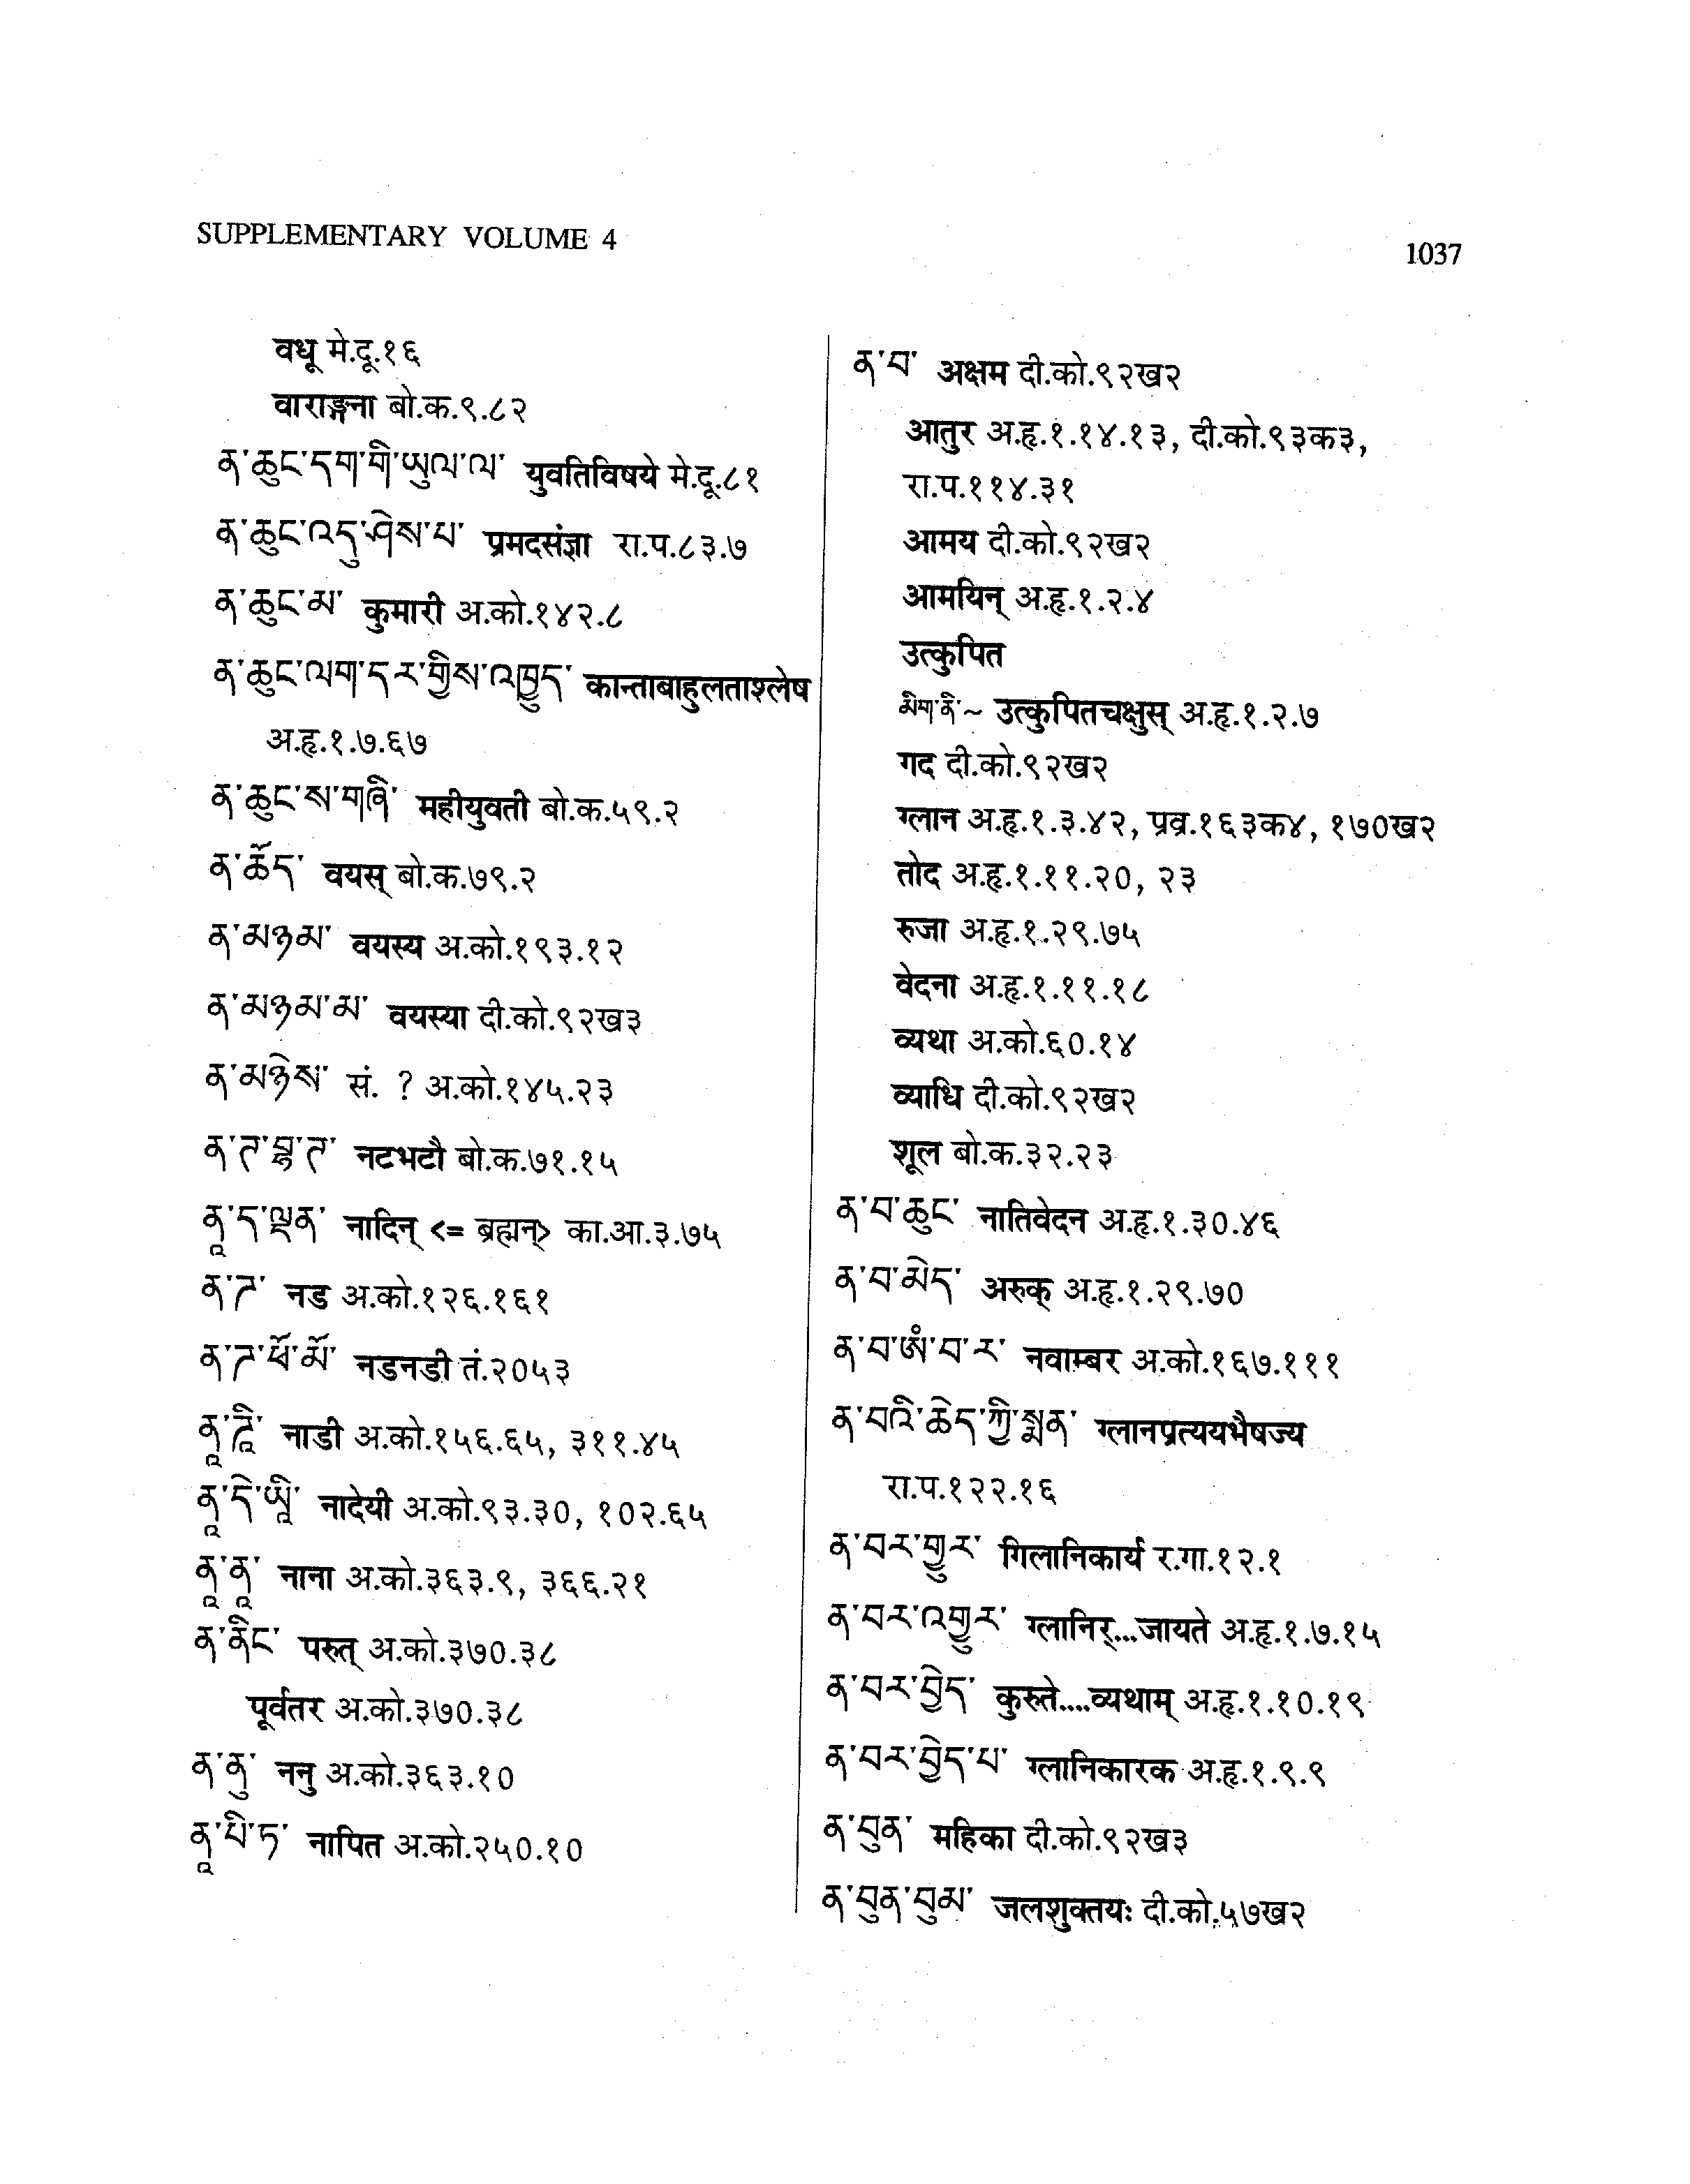 SUPPLEMENTARY VOLUME 4
1037
वधू मे.दू.१६
वाराङ्गना बो.क.९.८२
ན་ཆུང་དག་གི་ཡུལ་ལ་ युवतिविषये मे.दू.८१
ན་ཆུང་འདུ་ཤེས་པ་ प्रमदसंज्ञा रा.प.८३.७
ན་ཆུང་མ་ कुमारी अ.को.१४२.८
ན་ཆུང་ལག་དར་གྱིས་འཁྱུད་ कान्ताबाहुलताश्लेष
अ.हृ.१.७.६७
ན་ཆུང་ས་གཞི་ महीयुवती बो.क.५९.२
ན་ཚོད་ वयस् बो.क.७९.२
ན་མཉམ་ वयस्य अ.को.१९३.१२
ན་མཉམ་མ་ वयस्या दी.को.९२ख३
ན་མཉེས་ सं. ? अ.को.१४५.२३
ན་ཊ་བྷ་ཊ་ नटभटौ बो.क.७१.१५
ནཱ་ད་ལྡན་ नादिन् <= ब्रह्मन्> का.आ.३.७५
ན་ཌ་ नड अ.को.१२६.१६१
ན་ཌ་ཕོ་མོ་ नडनडी तं.२०५३
ནཱ་ཌཱི་ नाडी अ.को.१५६.६५, ३११.४५
ནཱ་དེ་ཡཱི་ नादेयी अ.को.९३.३०, १०२.६५
ནཱ་ནཱ་ नाना अ.को.३६३.९, ३६६.२१
ན་ནིང་ परुत् अ.को.३७०.३८
पूर्वतर अ.को.३७०.३८
ན་ནུ་ ननु अ.को.३६३.१०
ནཱ་པི་ཏ་ नापित अ.को.२५०.१०
ན་བ་ अक्षम दी.को.९२ख२
आतुर अ.हृ.१.१४.१३, दी.को.९३क३,
रा.प.११४.३१
आमय दी.को.९२ख२
आमयिन् अ.हृ.१.२.४
उत्कुपित
མིག་ནི་~ उत्कुपितचक्षुस् अ.हृ.१.२.७
गद दी.को.९२ख२
ग्लान अ.हृ.१.३.४२, प्रव्र.१६३क४, १७०ख२
तोद अ.हृ.१.११.२०, २३
रुजा अ.हृ.१.२९.७५
वेदना अ.हृ.१.११.१८
व्यथा अ.को.६०.१४
व्याधि दी.को.९२ख२
शूल बो.क.३२.२३
ན་བ་ཆུང་ नातिवेदन अ.हृ.१.३०.४६
ན་བ་མེད་ अरुक् अ.हृ.१.२९.७०
ན་བ་ཨཾ་བ་ར་ नवाम्बर अ.को.१६७.१११
ན་བའི་ཆེད་ཀྱི་སྨན་ ग्लानप्रत्ययभैषज्य
रा.प.१२२.१६
ན་བར་གྱུར་ गिलानिकार्य र.गा.१२.१
ན་བར་འགྱུར་ ग्लानिर्...जायते अ.हृ.१.७.१५
ན་བར་བྱེད་ कुरुते....व्यथाम् अ.हृ.१.१०.१९
ན་བར་བྱེད་པ་ ग्लानिकारक अ.हृ.१.९.९
ན་བུན་ महिका दी.को.९२ख३
ན་བུན་བུམ་ जलशुक्तयः दी.को.५७ख२